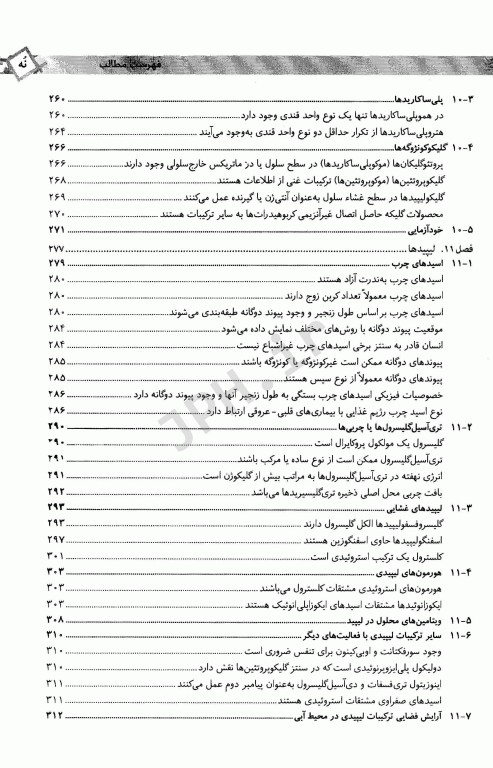 فهرست مطالب
نُه
۱۰-۳ پلی‌ساکاریدها ۲۶۰
در هموپلی‌ساکاریدها تنها یک نوع واحد قندی وجود دارد ۲۶۰
هتروپلی‌ساکاریدها از تکرار حداقل دو نوع واحد قندی به‌وجود می‌آیند ۲۶۴
۱۰-۴ گلیکوکونژوگه‌ها ۲۶۶
پروتئوگلیکان‌ها (موکوپلی‌ساکاریدها) در سطح سلول یا در ماتریکس خارج‌سلولی وجود دارند ۲۶۶
گلیکوپروتئین‌ها (موکوپروتئین‌ها) ترکیبات غنی از اطلاعات هستند ۲۶۸
گلیکولیپیدها در سطح غشاء سلول به‌عنوان آنتی‌ژن یا گیرنده عمل می‌کنند ۲۶۹
محصولات گلیکه حاصل اتصال غیرآنزیمی کربوهیدرات‌ها به سایر ترکیبات هستند ۲۷۰
۱۰-۵ خودآزمایی ۲۷۱
فصل ۱۱. لیپیدها ۲۷۷
۱۱-۱ اسیدهای چرب ۲۷۹
اسیدهای چرب به‌ندرت آزاد هستند ۲۸۰
اسیدهای چرب معمولاً تعداد کربن زوج دارند ۲۸۰
اسیدهای چرب بر اساس طول زنجیر و وجود پیوند دوگانه طبقه‌بندی می‌شوند ۲۸۰
موقعیت پیوند دوگانه با روش‌های مختلف نمایش داده می‌شود ۲۸۴
انسان قادر به سنتز برخی اسیدهای چرب غیراشباع نیست ۲۸۴
پیوندهای دوگانه ممکن است غیرکونژوگه یا کونژوگه باشند ۲۸۵
پیوندهای دوگانه معمولاً از نوع سیس هستند ۲۸۵
خصوصیات فیزیکی اسیدهای چرب بستگی به طول زنجیر آنها و وجود پیوند دوگانه دارد ۲۸۶
نوع اسید چرب رژیم غذایی با بیماری‌های قلبی-عروقی ارتباط دارد ۲۸۶
۱۱-۲ تری‌آسیل‌گلیسرول‌ها یا چربی‌ها ۲۹۰
گلیسرول یک مولکول پروکایرال است ۲۹۰
تری‌آسیل‌گلیسرول ممکن است از نوع ساده یا مرکب باشند ۲۹۱
انرژی نهفته در تری‌آسیل‌گلیسرول‌ها به مراتب بیش از گلیکوژن است ۲۹۱
بافت چربی محل اصلی ذخیره تری‌گلیسیریدها می‌باشد ۲۹۲
۱۱-۳ لیپیدهای غشایی ۲۹۳
گلیسروفسفولیپیدها الکل گلیسرول دارند ۲۹۳
اسفنگولیپیدها حاوی اسفنگوزین هستند ۲۹۷
کلسترول یک ترکیب استروئیدی است ۳۰۱
۱۱-۴ هورمون‌های لیپیدی ۳۰۳
هورمون‌های استروئیدی مشتقات کلسترول می‌باشند ۳۰۳
ایکوزانوئیدها مشتقات اسیدهای ایکوزاپلی‌انوئیک هستند ۳۰۳
۱۱-۵ ویتامین‌های محلول در لیپید ۳۰۸
۱۱-۶ سایر ترکیبات لیپیدی با فعالیت‌های دیگر ۳۱۰
وجود سورفکتانت و اوبی‌کینون برای تنفس ضروری است ۳۱۰
دولیکول پلی‌ایزوپرنوئیدی است که در سنتز گلیکوپروتئین‌ها نقش دارد ۳۱۰
اینوزیتول تری‌فسفات و دی‌آسیل‌گلیسرول به‌عنوان پیامبر دوم عمل می‌کنند ۳۱۱
اسیدهای صفراوی مشتقات استروئیدی هستند ۳۱۱
۱۱-۷ آرایش فضایی ترکیبات لیپیدی در محیط آبی ۳۱۲